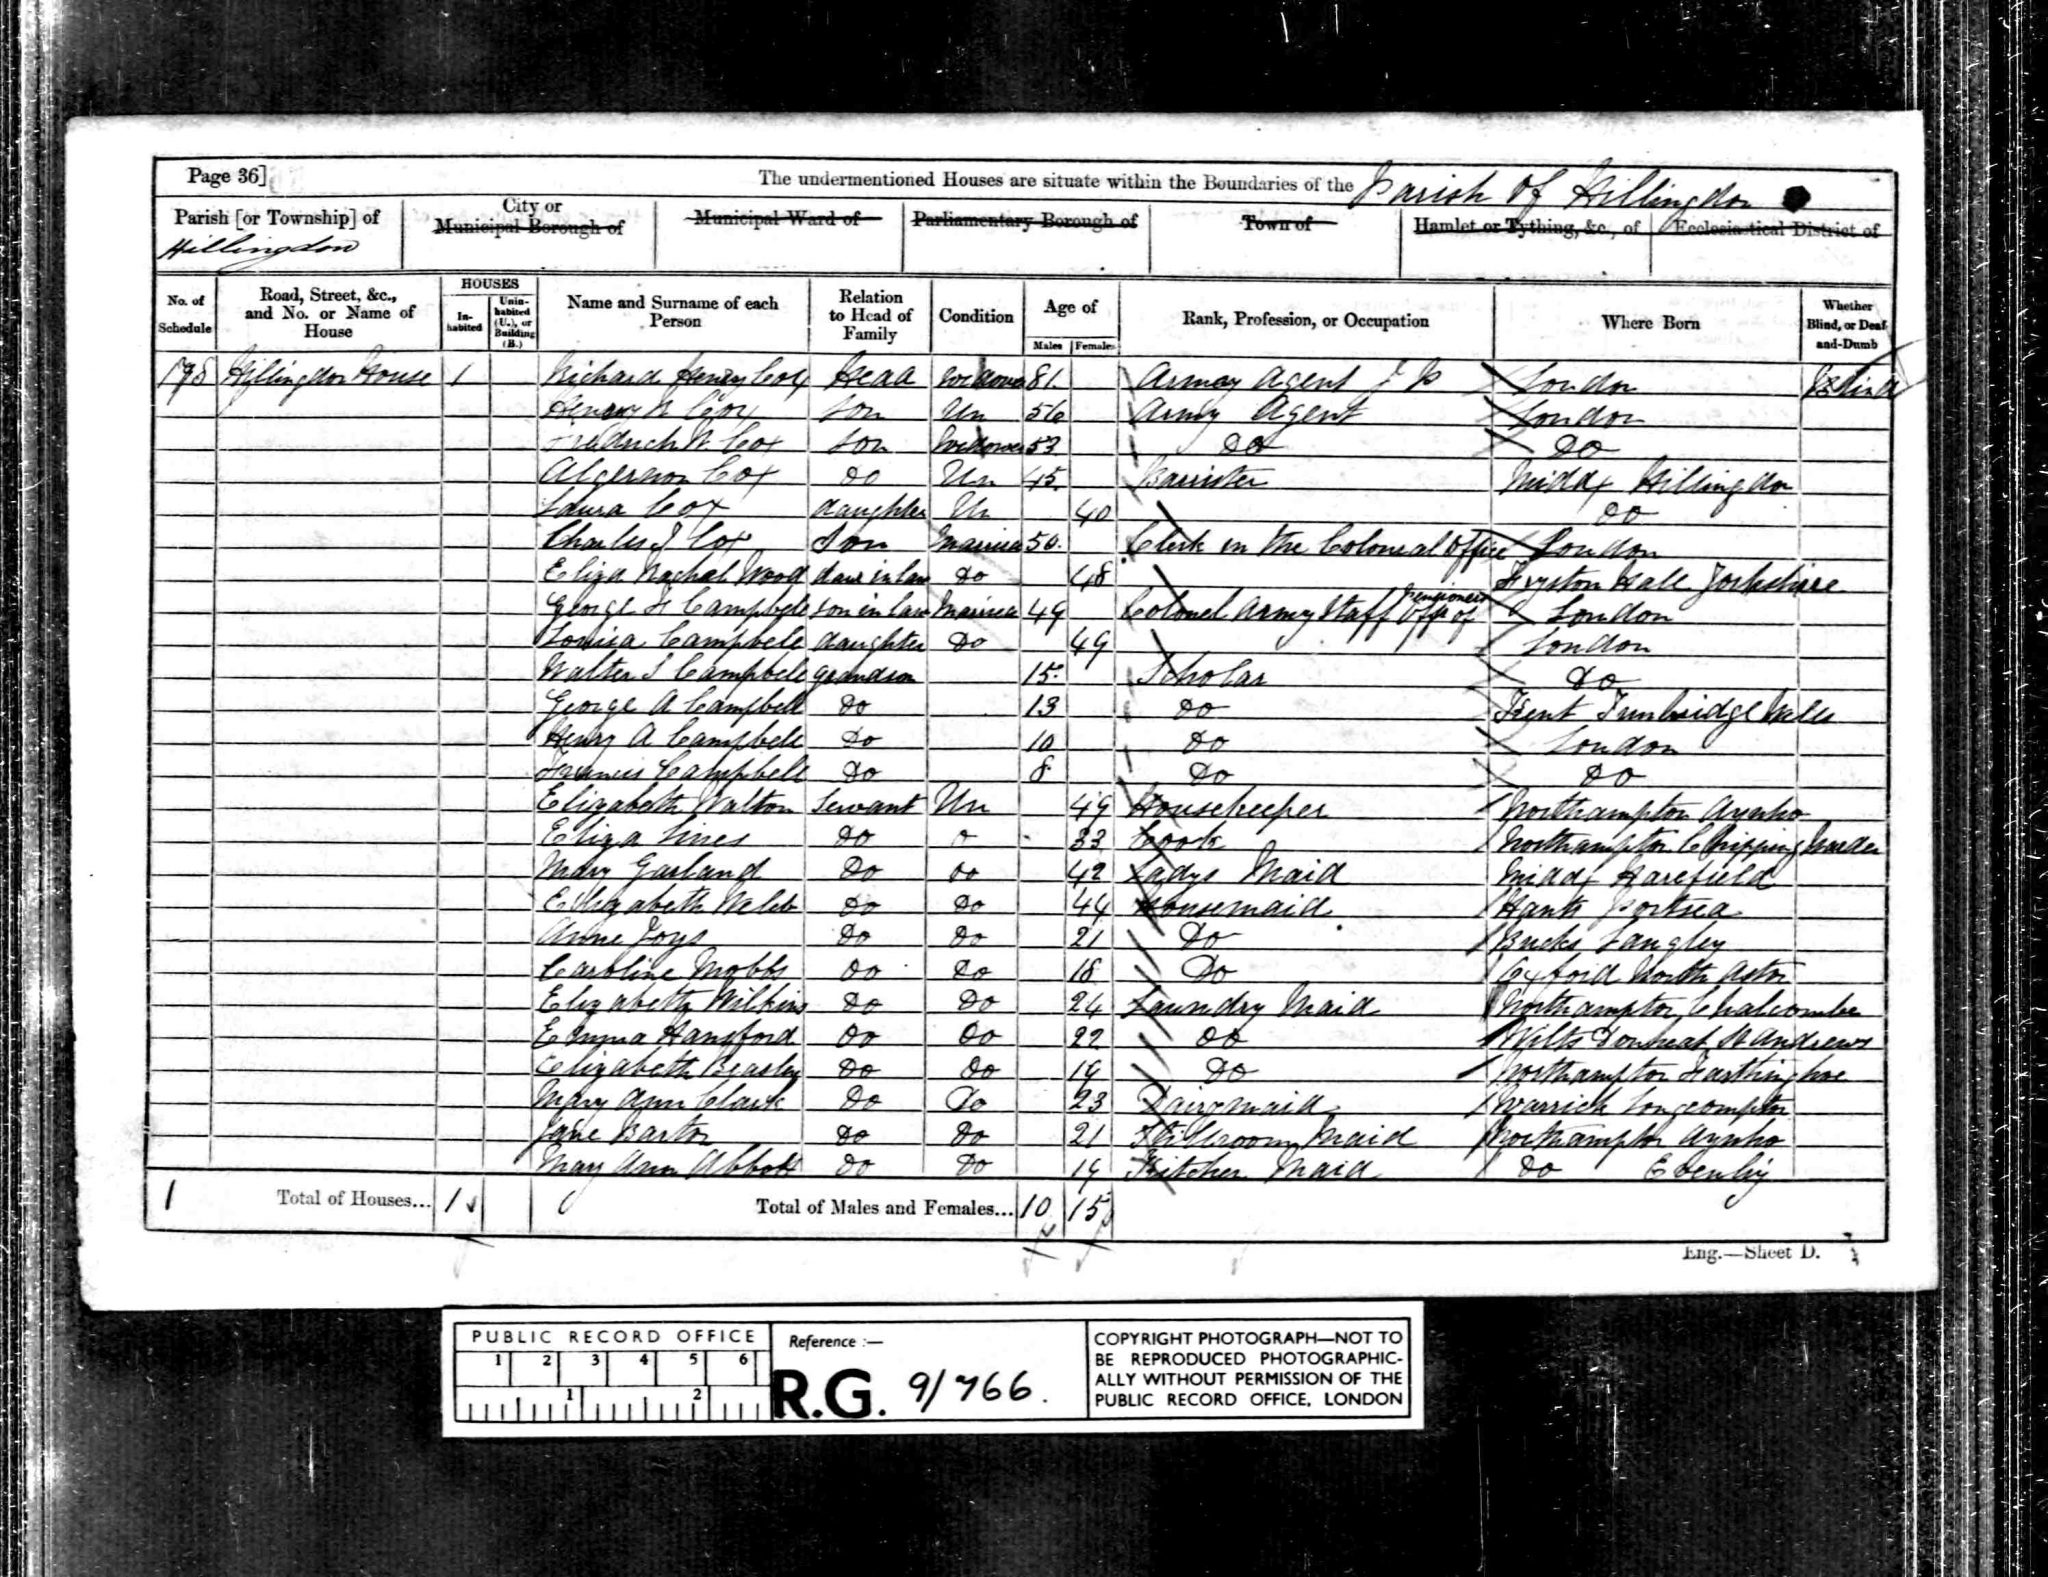 Page 36]
The undermentioned Houses are situate within the Boundaries of the Parish of Hillingdon
Parish [or Township] of Hillingdon
City or Municipal Borough of
Municipal Ward of
Parliamentary Borough of
Town of
Hamlet or Tything, &c., of
Ecclesiastical District of
No. of Schedule
Road, Street, &c., and No. or Name of House
HOUSES
In-habited
Unin-habited (U.), or Building (B.)
Name and Surname of each Person
Relation to Head of Family
Condition
Age of
Males Females
Rank, Profession, or Occupation
Where Born
Whether Blind, or Deaf-and-Dumb
198 Hillingdon House 1 Richard Henry Cox Head Widower 81 Army Agent J P London Blind
Henry Cox Son Un 56 Army Agent London
Frederick W. Cox Son Widower 53 Do Do
Algernon Cox Do Un 45 Barrister Middx Hillingdon
Laura Cox daughter Un 40 Do
Charles J Cox Son Married 50 Clerk in the Colonial Office London
Eliza Rachel Wood daur in law Do 48 Fryston Hall Yorkshire
George H Campbell son in law Married 49 Colonel Army Staff Offr of Pensioners London
Louisa Campbell daughter Do 49 London
Walter S Campbell grandson 15 Scholar Do
George A Campbell Do 13 Do Kent Tunbridge Wells
Henry A Campbell Do 10 Do London
Francis Campbell Do 8 Do Do
Elizabeth Walton Servant Un 49 Housekeeper Northampton Aynho
Eliza Lines Do o 33 Cook Northampton Chipping Warden
Mary Garland Do Do 42 Ladys Maid Middx Harefield
Elizabeth Webb Do Do 44 Housemaid Hants Portsea
Anne Joys Do Do 21 Do Bucks Langley
Caroline Mobbs Do Do 18 Do Oxford North Aston
Elizabeth Wilkins Do Do 24 Laundry Maid Northampton Chalcombe
Emma Hansford Do Do 22 Do Wilts Donheat St Andrews
Elizabeth Beasley Do Do 19 Do Northampton Farthinghoe
Mary Ann Clark Do Do 23 Dairymaid Warrick Longcompton
Jane Barton Do Do 21 Stillroom Maid Northampton Aynho
Mary Ann Abbott Do Do 19 Kitchen Maid Do Evenly
1 Total of Houses... 1 Total of Males and Females... 10 15
Eng.—Sheet D.
PUBLIC RECORD OFFICE
1 2 3 4 5 6
1 2
Reference :—
R.G. 9/766.
COPYRIGHT PHOTOGRAPH—NOT TO
BE REPRODUCED PHOTOGRAPHIC-
ALLY WITHOUT PERMISSION OF THE
PUBLIC RECORD OFFICE, LONDON